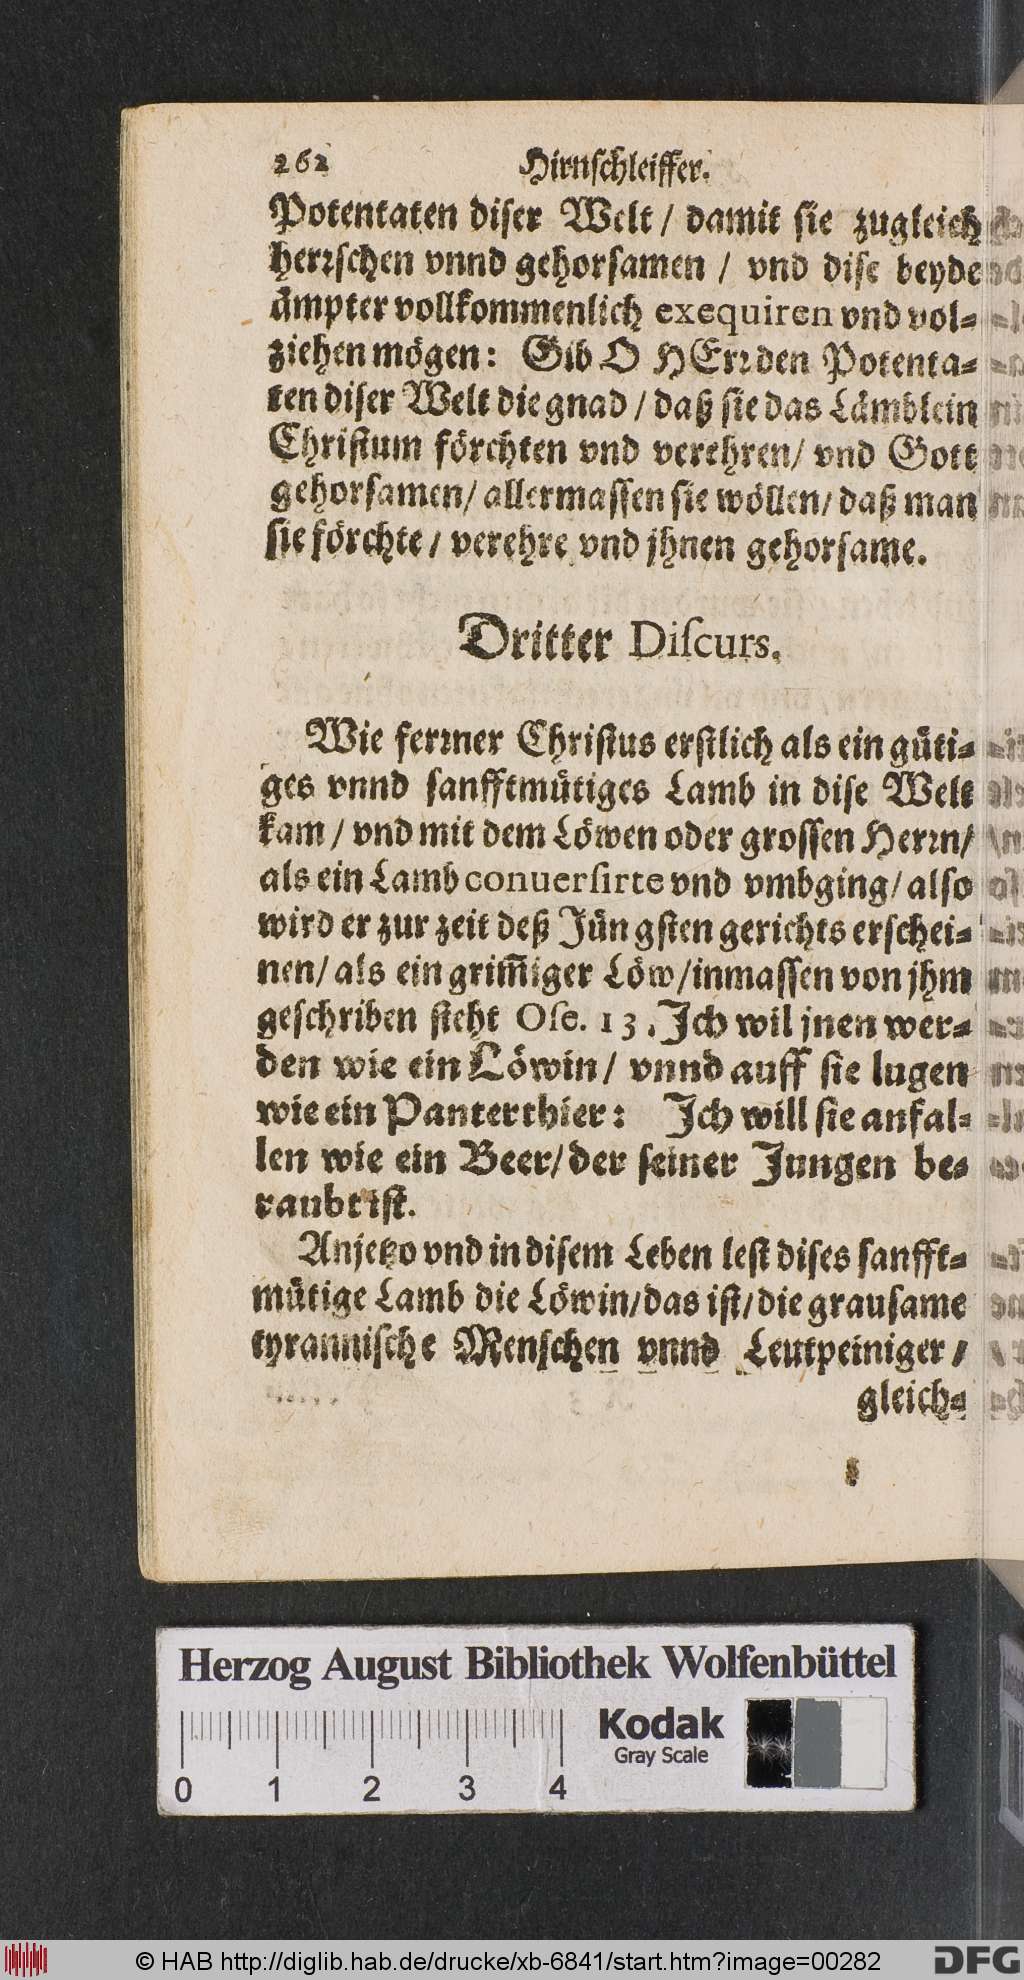 262 Hirnſchleiffer.
Potentaten diſer Welt / damit ſie zugleich
herꝛſchen vnnd gehorſamen / vnd diſe beyde
aͤmpter vollkommenlich exequiren vnd vol⸗
ziehen moͤgen: Gib O HErꝛ den Potenta⸗
ten diſer Welt die gnad / daß ſie das Laͤmblein
Chriſtum foͤrchten vnd verehren / vnd Gott
gehorſamen / allermaſſen ſie woͤllen / daß man
ſie foͤrchte / verehre vnd jhnen gehorſame.
Dritter Diſcurs.
Wie ferꝛner Chriſtus erſtlich als ein guͤti⸗
ges vnnd ſanfftmuͤtiges Lamb in diſe Welt
kam / vnd mit dem Loͤwen oder groſſen Herꝛn /
als ein Lamb conuerſirte vnd vmbging / alſo
wird er zur zeit deß Juͤngſten gerichts erſchei⸗
nen / als ein grim̃iger Loͤw / inmaſſen von jhm
geſchriben ſteht Oſe. 13. Jch wil jnen wer⸗
den wie ein Loͤwin / vnnd auff ſie lugen
wie ein Panterthier: Jch will ſie anfal⸗
len wie ein Beer / der ſeiner Jungen be⸗
raubt iſt.
Anjetzo vnd in diſem Leben leſt diſes ſanfft⸗
muͤtige Lamb die Loͤwin / das iſt / die grauſame
tyranniſche Menſchen vnnd Leutpeiniger /
gleich⸗
Herzog August Bibliothek Wolfenbüttel
Kodak
Gray Scale
0 1 2 3 4
© HAB http://diglib.hab.de/drucke/xb-6841/start.htm?image=00282
DFG